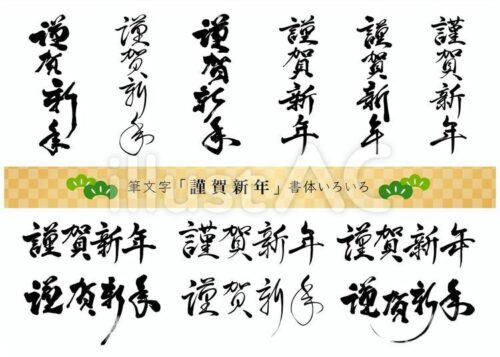 謹賀新年
謹賀新年
謹賀新年
謹賀新年
謹賀新年
謹賀新年
筆文字「謹賀新年」書体いろいろ
illust AC
謹賀新年
謹賀新年
謹賀新年
謹賀新年
謹賀新年
謹賀新年